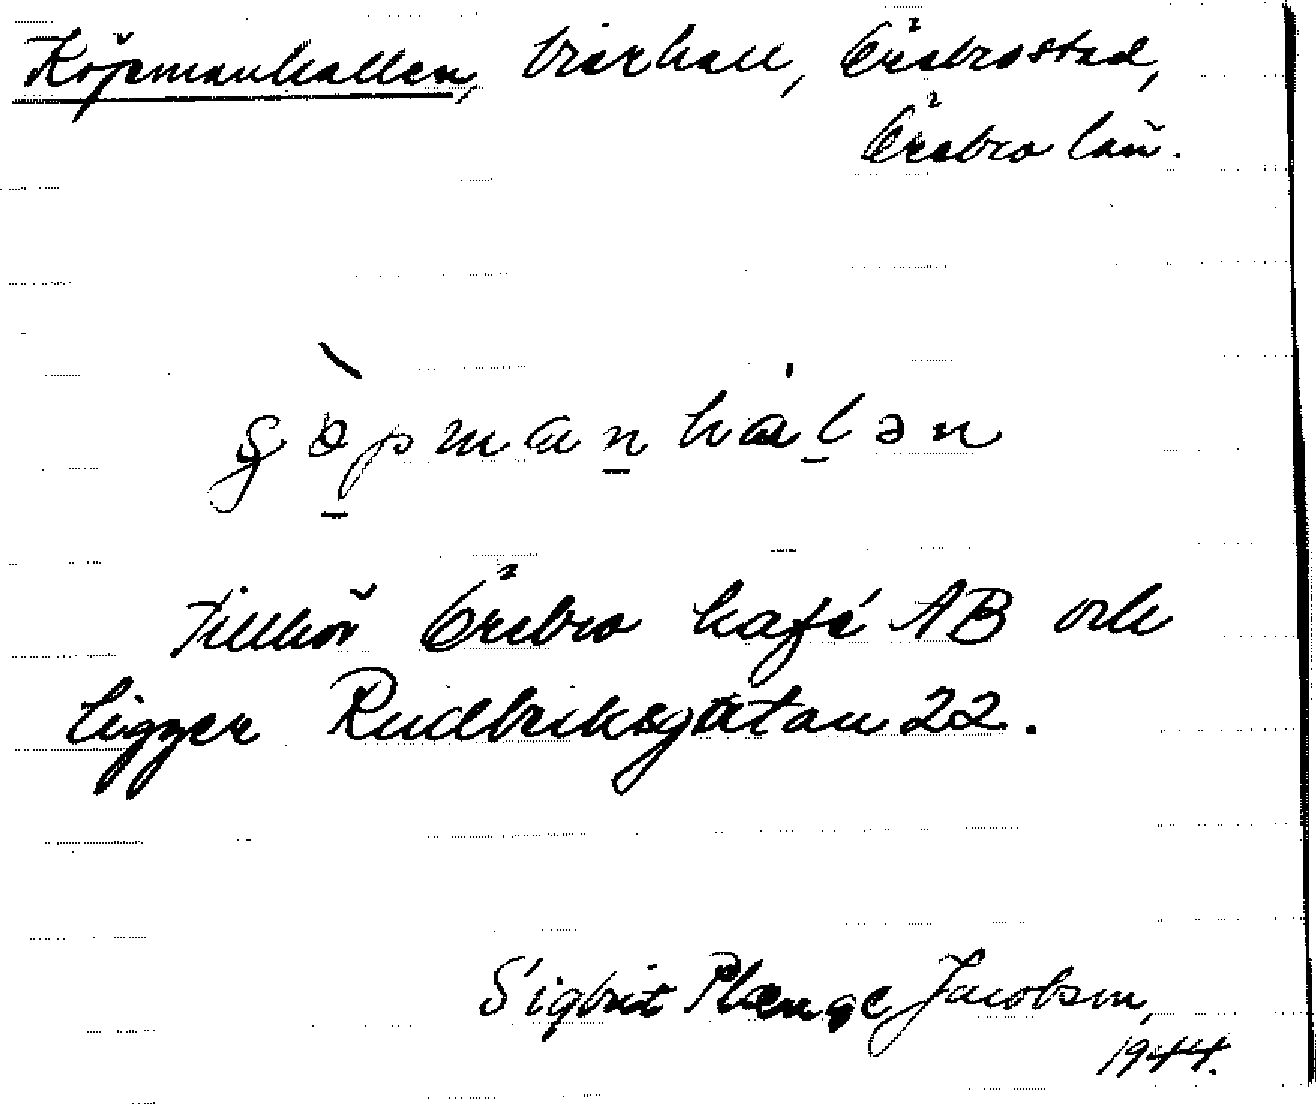 Köpmanhallen, bierhall, Örebro stad,
Örebro län.
Tillhör Örebro kafé AB och
ligger Rudbeksgatan 22.
Sigbrit Plænge Jacobson,
1944.